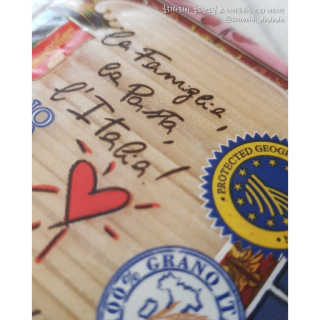 La Famiglia,
la Pasta,
l'Italia!
PROTECTED GEOG
100% GRANO IT